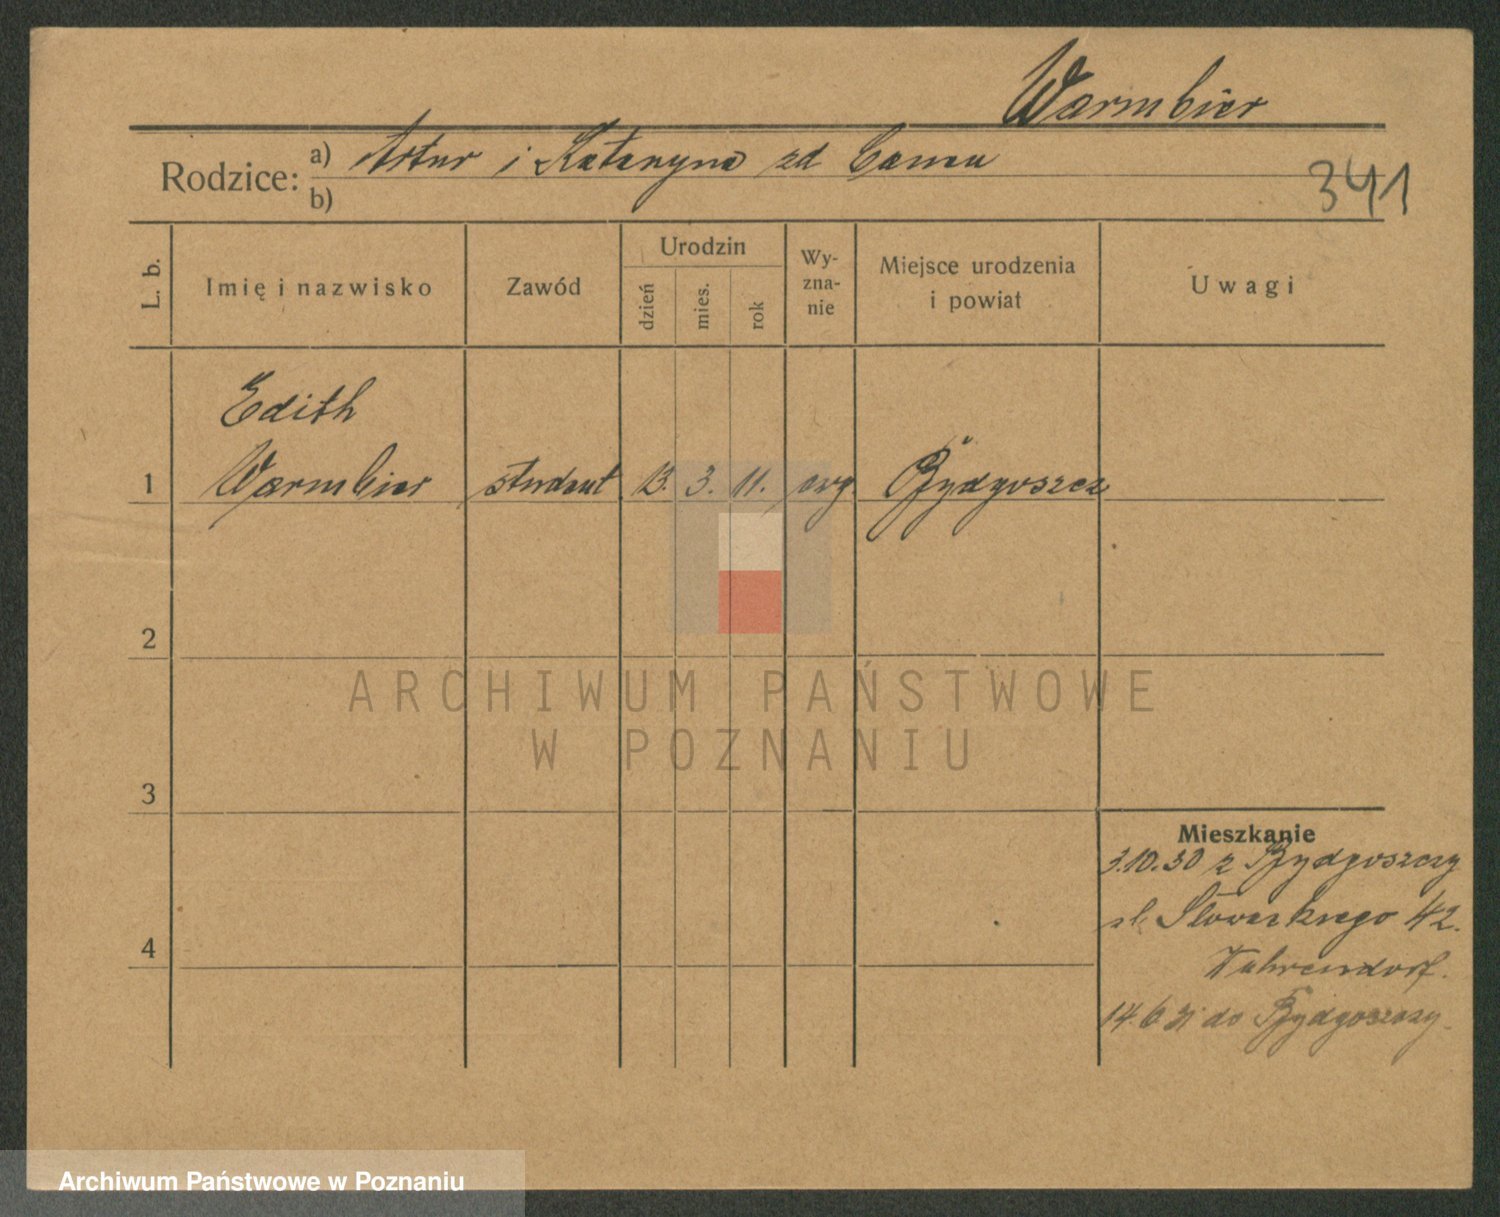 Warmbier
Rodzice: a) Artur i Kataryna zd
b)
341
L. b.
Imię i nazwisko
Zawód
Urodzin
dzień
mies.
rok
Wy-
zna-
nie
Miejsce urodzenia
i powiat
Uwagi
Edith
1 Warmbier student 13. 3. 11. ewg Bydgoszcz
2
ARCHIWUM PAŃSTWOWE
W POZNANIU
3
Mieszkanie
3.10.30 z Bydgoszczy
ul. Słowackiego 42.
4
14.6.31 do Bydgoszczy.
Archiwum Państwowe w Poznaniu